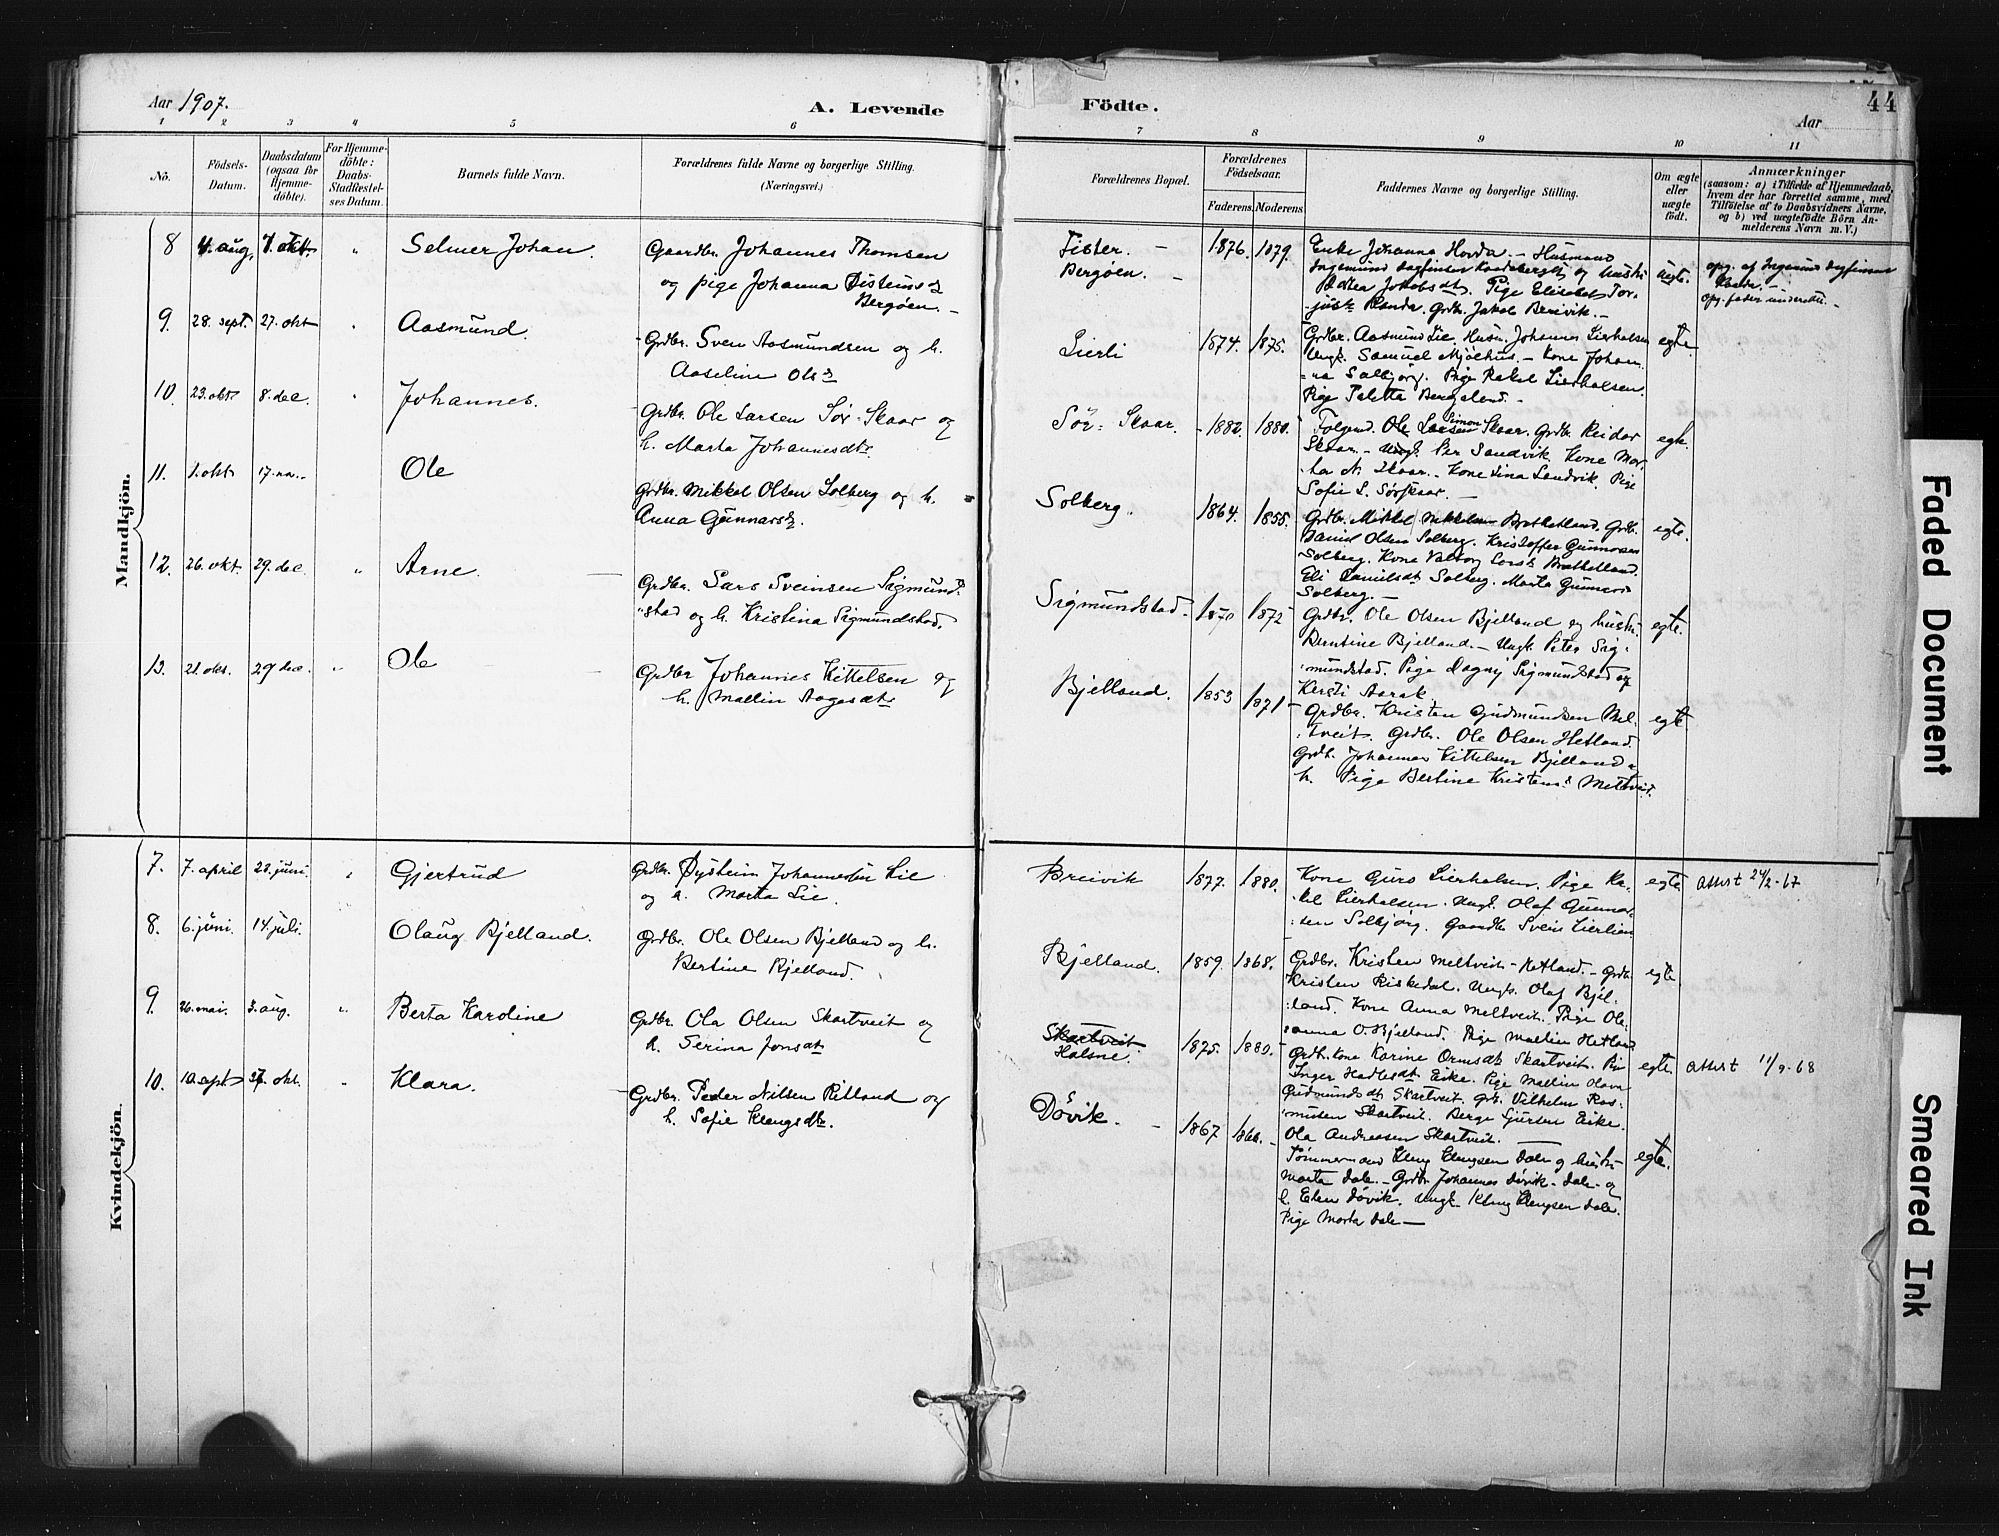 Aar 1907.
A. Levende
Födte.
44
Aar
1 2 3 4 5 6
7 8 9 10 11
No.
Födsels-
Datum.
Daabsdatum
(ogsaa for
Hjemme-
döbte).
For Hjemme-
döbte:
Daabs-
Stadfæstel-
ses Datum.
Barnets fulde Navn.
Forældrenes fulde Navne og borgerlige Stilling.
(Næringsvei.)
Forældrenes Bopæl.
Forældrenes
Födselsaar.
Faderens. Moderens.
Faddernes Navne og borgerlige Stilling.
Om ægte
eller
uægte
födt.
Anmærkninger
(saasom: a) i Tilfælde af Hjemmedaab,
hvem der har forrettet samme, med
Tilföielse af to Daabsvidners Navne,
og b) ved uægtefödte Börn An-
melderens Navn m. V.)
Mandkjön.
8 4. aug. 7. okt. " Selmer Johan.
Gaardbr. Johannes Thomsen
og pige Johanna
Bergøen.
Fister.
Bergøen.
1876. 1879.
Enke Johanna Hovda. - Husmand
Ingemund Dagfinsen og hustr.
Jakobsdt. Pige Elisabet Tor-
Grdbr. Jakob Breivik. -
uegte.
opg. af Ingemund Dagfinsen
opg. fader underrette. -
9. 28. sept. 27. okt " Aasmund.
Grdbr. Sven Aasmundsen og h.
Aaseline Olsd
Lierli
1874. 1875.
Grdbr. Aasmund Lie. Husm. Johannes Lierhalsen
Ungk. Samuel Mjølhus. - Kone Johan
na Solbjørg. Pige Rakel Lierhalsen.
Pige Taletta Bergeland. -
egte.
10. 23. okt 8. dec. " Johannes.
Grdbr. Ole Larsen Sør-Skaar og
h. Marta Johannesdt.
Sør-Skaar.
1882. 1880.
Folgemd. Ole Simon Skaar. Grdbr. Reidar
Skaar. - Ungk. Per Sandvik. Kone Mar-
ta N. Skaar. - Kone Lina Sandvik. Pige
Sofie L. Sørskaar. -
egte.
11. 1. okt 17. no. Ole
Grdbr. Mikkel Olsen Solberg og h.
Anna Gunnarsd.
Solberg.
1864. 1855.
Grdbr. Mikkel Mikkelsen Brathetland. Grdb.
Daniel Olsen Solberg. Kristoffer Gunnarsen
Solberg. Kone Valborg Brathetland.
Eli Danielsdt Solberg. Marta Gunnarsd
Solberg. -
egte.
12. 26. okt. 29. dec. " Arne.
Grdbr. Lars Sveinsen Sigmund-
stad og h. Kristina Sigmundstad.
Sigmundstad.
1870 1872
Grdbr. Ole Olsen Bjelland og hustr.
Berntine Bjelland. - Ungk. Peter Sig-
mundstad. Pige Dagny Sigmundstad og
Kersti Aarak.
egte.
13. 21. okt. 29 dec. " Ole
Grdbr Johannes Kittelsen og
h. Mallin Aagesdt
Bjelland.
1853 1871
Grdbr. Kristen Gudmundsen Mel-
tveit. Grdbr. Ole Olsen Hetland.
Grdb. Johannes Kittelsen Bjelland
h. Pige Bertine Kristens Meltveit.
egte.
Kvindekjön.
7. 7. april 23. juni. " Gjertrud
Grdbr. Øystein Johannessen Lie
og h. Marta Lie.
Breivik
1877. 1880.
Kone Guro Lierhalsen. Pige Ra-
kel Lierhalsen. Ungk. Olaf Gunnar-
sen Solbjørg. Gaardb. Svein Lierlien
egte Attest 24/2-67
8. 6. juni. 14. juli. Olaug Bjelland.
Grdbr. Ole Olsen Bjelland og h.
Bertine Bjelland.
Bjelland.
1859. 1868.
Grdbr. Kristen Meltveit - Hetland. - Grdb.
Kristen Riskedal. Ungk. Olaf Bjel-
land. Kone Anna Meltveit. Pige Ole-
anna O. Bjelland. Pige Mallin Hetland
egte
9. 26. mai. 3. aug. " Berta Karoline
Grdbr. Ola Olsen Skartveit og
h. Serina Jonsdt
Skartveit
Halsne.
1875. 1880.
Grdb. Kone Karine Ormsdt Skartveit. Pige
Inger Hadlesdt Eike. Pige Mallin Olava
Gudmundsdt Skartveit. Grb. Vilhelm Ras-
musen Skartveit. Berge Sjursen Eike.
Ola Andreasen Skartveit.
egte. Attest 11/9-68
10. 10. sept. 27. okt. " Klara.
Grdbr. Peder Nilsen Ritland og
h. Sofie Klengsdt.
Døvik.
1867
Tømmermand Kleng Klengsen Dale og hustr.
Marta Dale. - Grdbr. Johannes Døvik - Dale - og
h. Elen Døvik. Ungk. Kleng Klengsen Dale.
Pige Marta Dale -
egte.
Faded Document
Smeared Ink